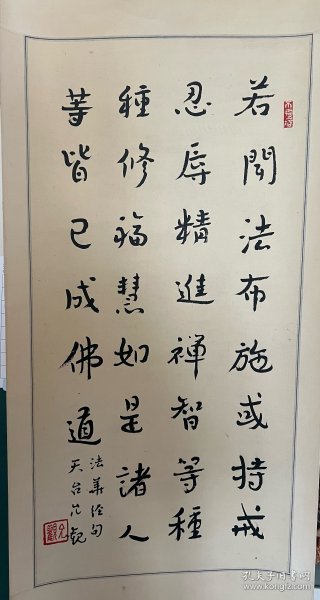 若聞法布施或持戒
忍辱精進禪智等種
種修福慧如是諸人
等皆已成佛道
法華經句
天台允觀
孔夫子旧书网